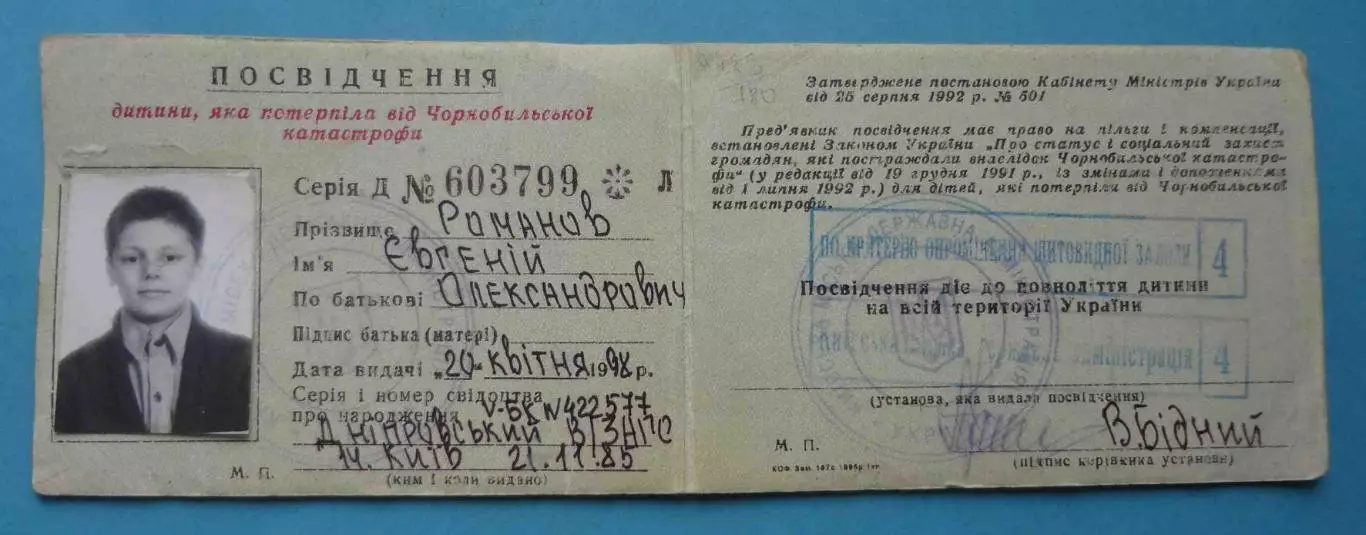 ПОСВІДЧЕННЯ
дитини, яка потерпіла від Чорнобильської
катастрофи
Серія Д № 603799 Л
Прізвище Романов
Ім'я Євгеній
По батькові Олександрович
Підпис батька (матері)
Дата видачі „20" квітня 1998 р.
Серія і номер свідоцтва
про народження V-БК N422577
Дніпровський ВГЗНГС
м. Київ 21.11.85
М. П. (ким і коли видано)
Затверджене постановою Кабінету Міністрів України
від 25 серпня 1992 р. № 501
Пред'явник посвідчення має право на пільги і компенсації,
встановлені Законом України „Про статус і соціальний захист
громадян, які постраждали внаслідок Чорнобильської катастро-
фи" (у редакції від 19 грудня 1991 р., із змінами і доповненнями
від 1 липня 1992 р.) для дітей, які потерпіли від Чорнобильської
катастрофи.
ПО КРИТЕРІЮ ОПРОМІНЕННЯ ЩИТОВИДНОЇ ЗАЛОЗИ 4
Посвідчення діє до повноліття дитини
на всій території України
державна адміністрація 4
(установа, яка видала посвідчення)
В.Бідний
М. П.
(підпис керівника установи)